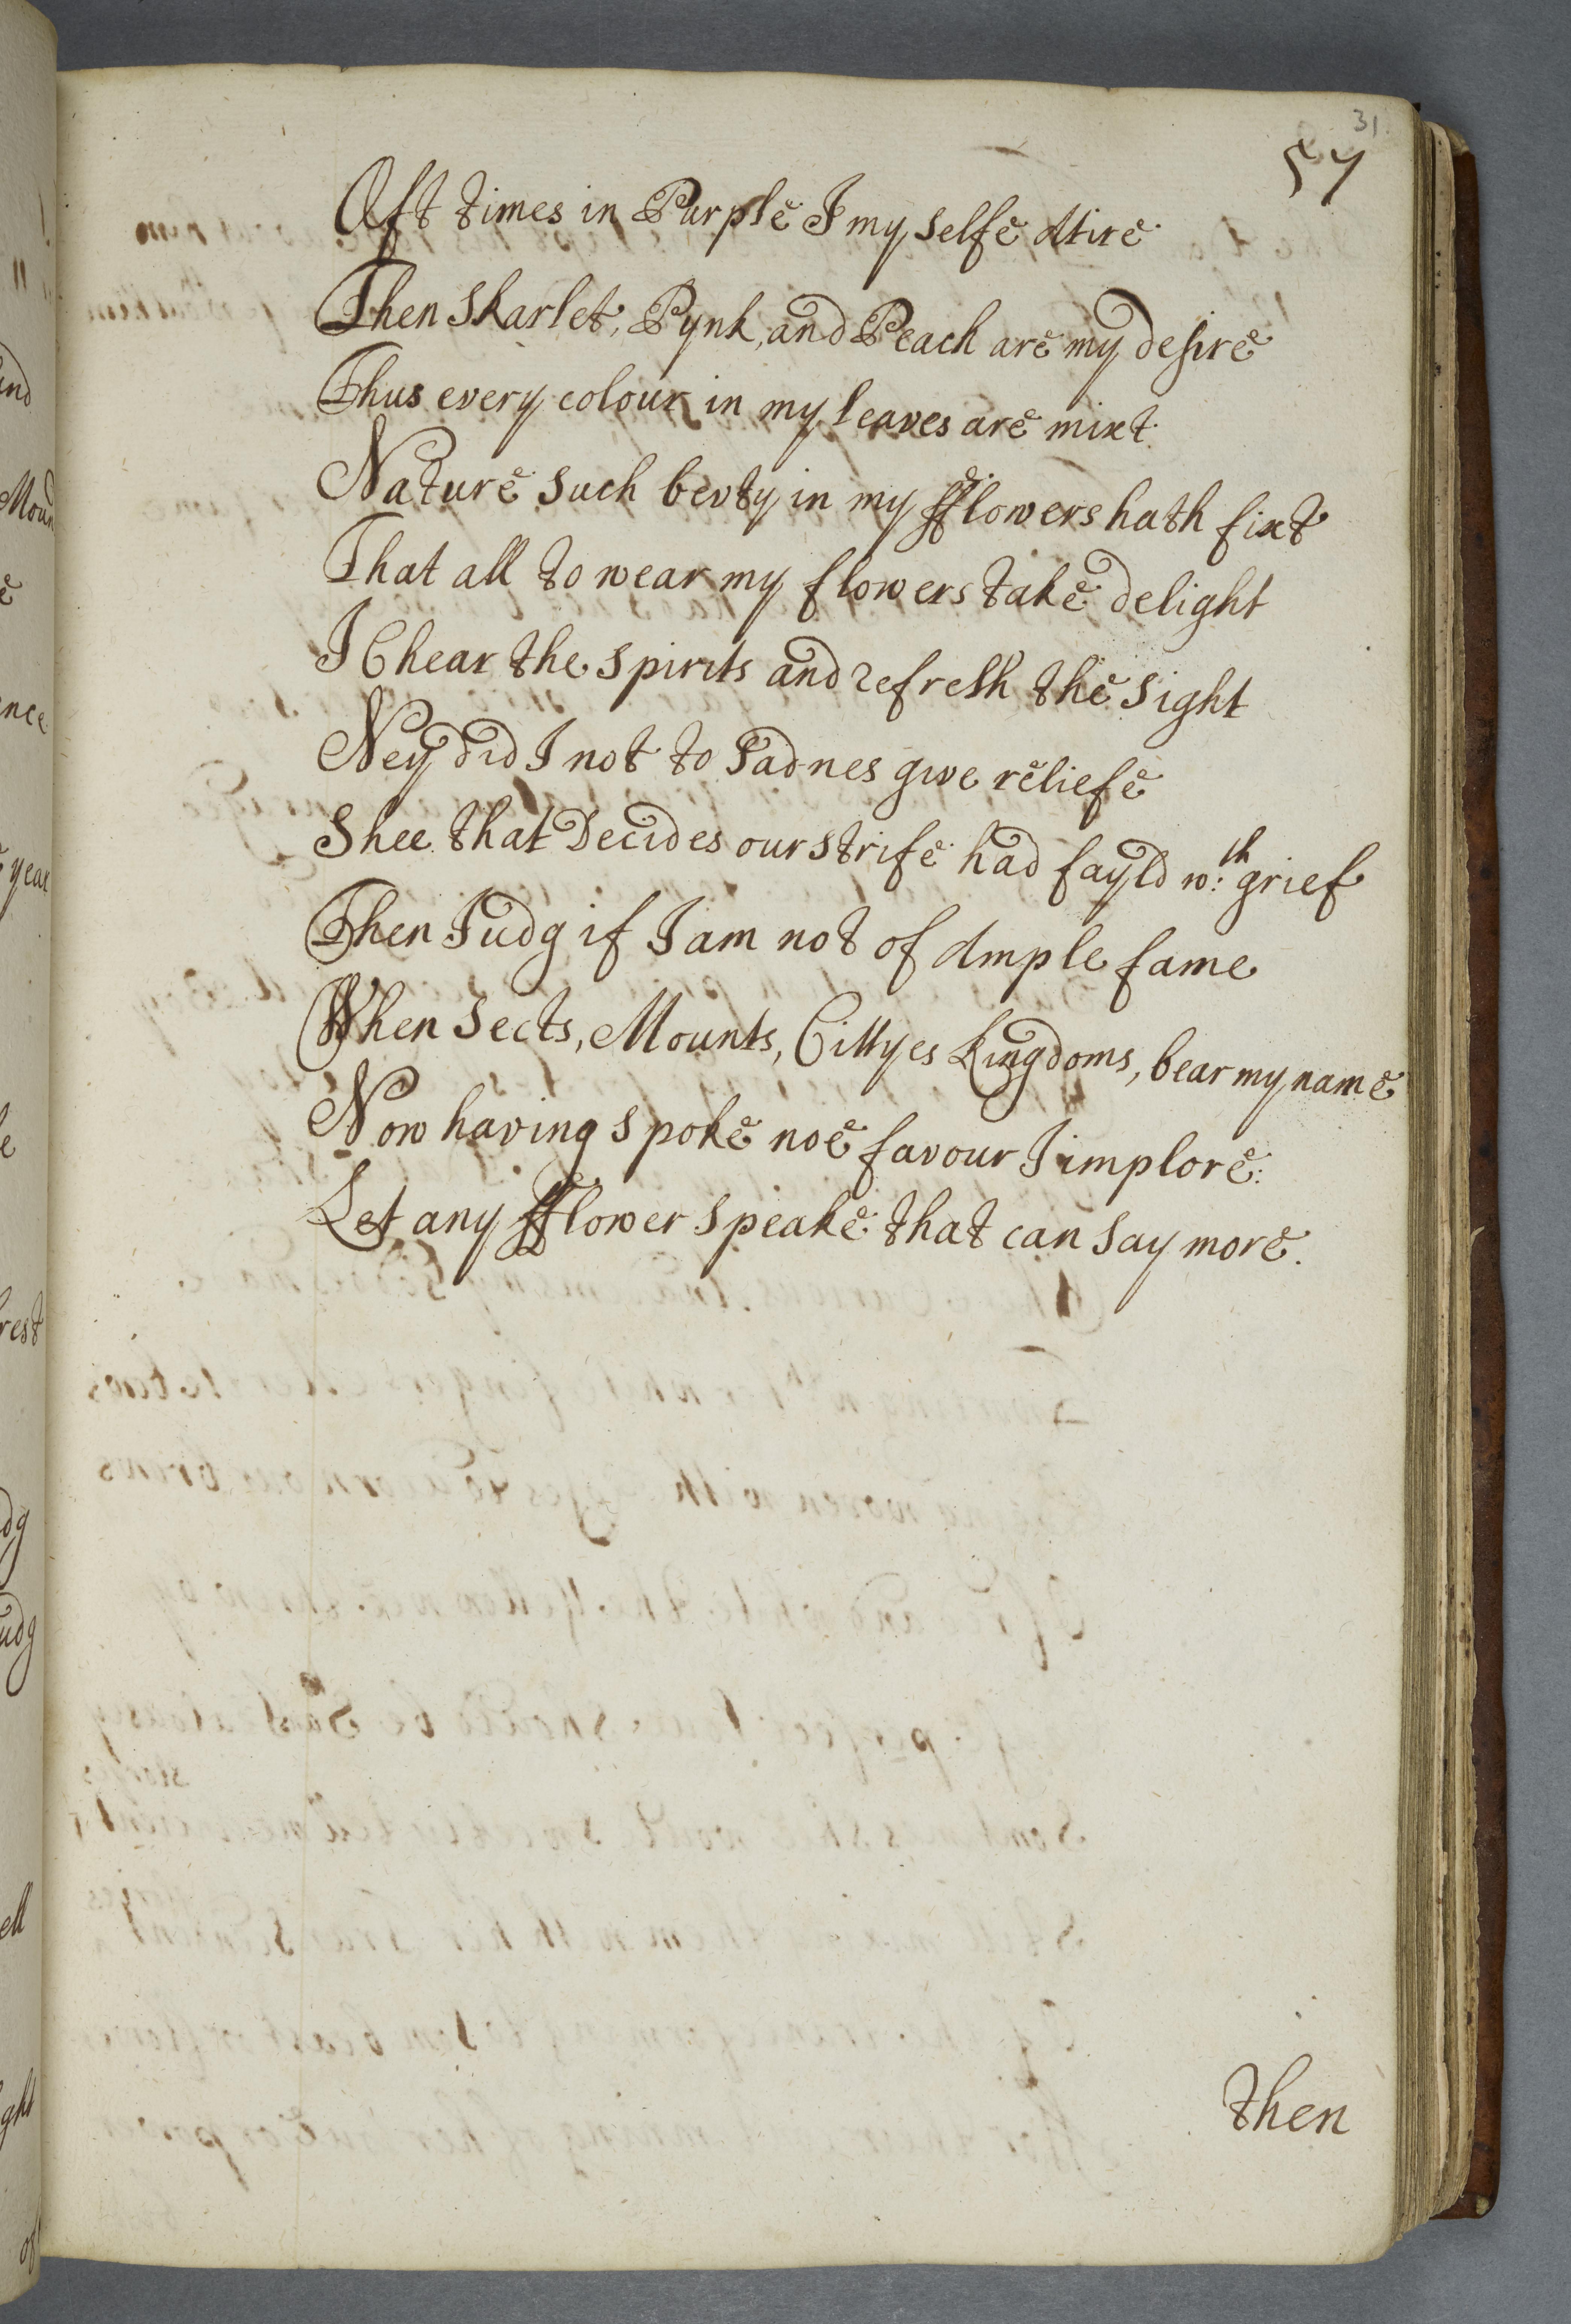 31
57
Oft times in Purple I my selfe Atire
Then Skarlet, Pynk, and Peach are my desire
Thus every colour in my leaves are mixt
Nature such bevty in my fflowers hath fixt
That all to wear my flowers take delight
I Chear the spirits and refresh the sight
Ney did I not to Sadnes give reliefe
Shee that Decides our strife had fayld wth: grief
Then Judg if I am not of Ample fame
When Sects, Mounts, Cittyes Kingdoms, bear my name
Now having spoke noe favour I implore:
Let any fflower speake that can say more.
then